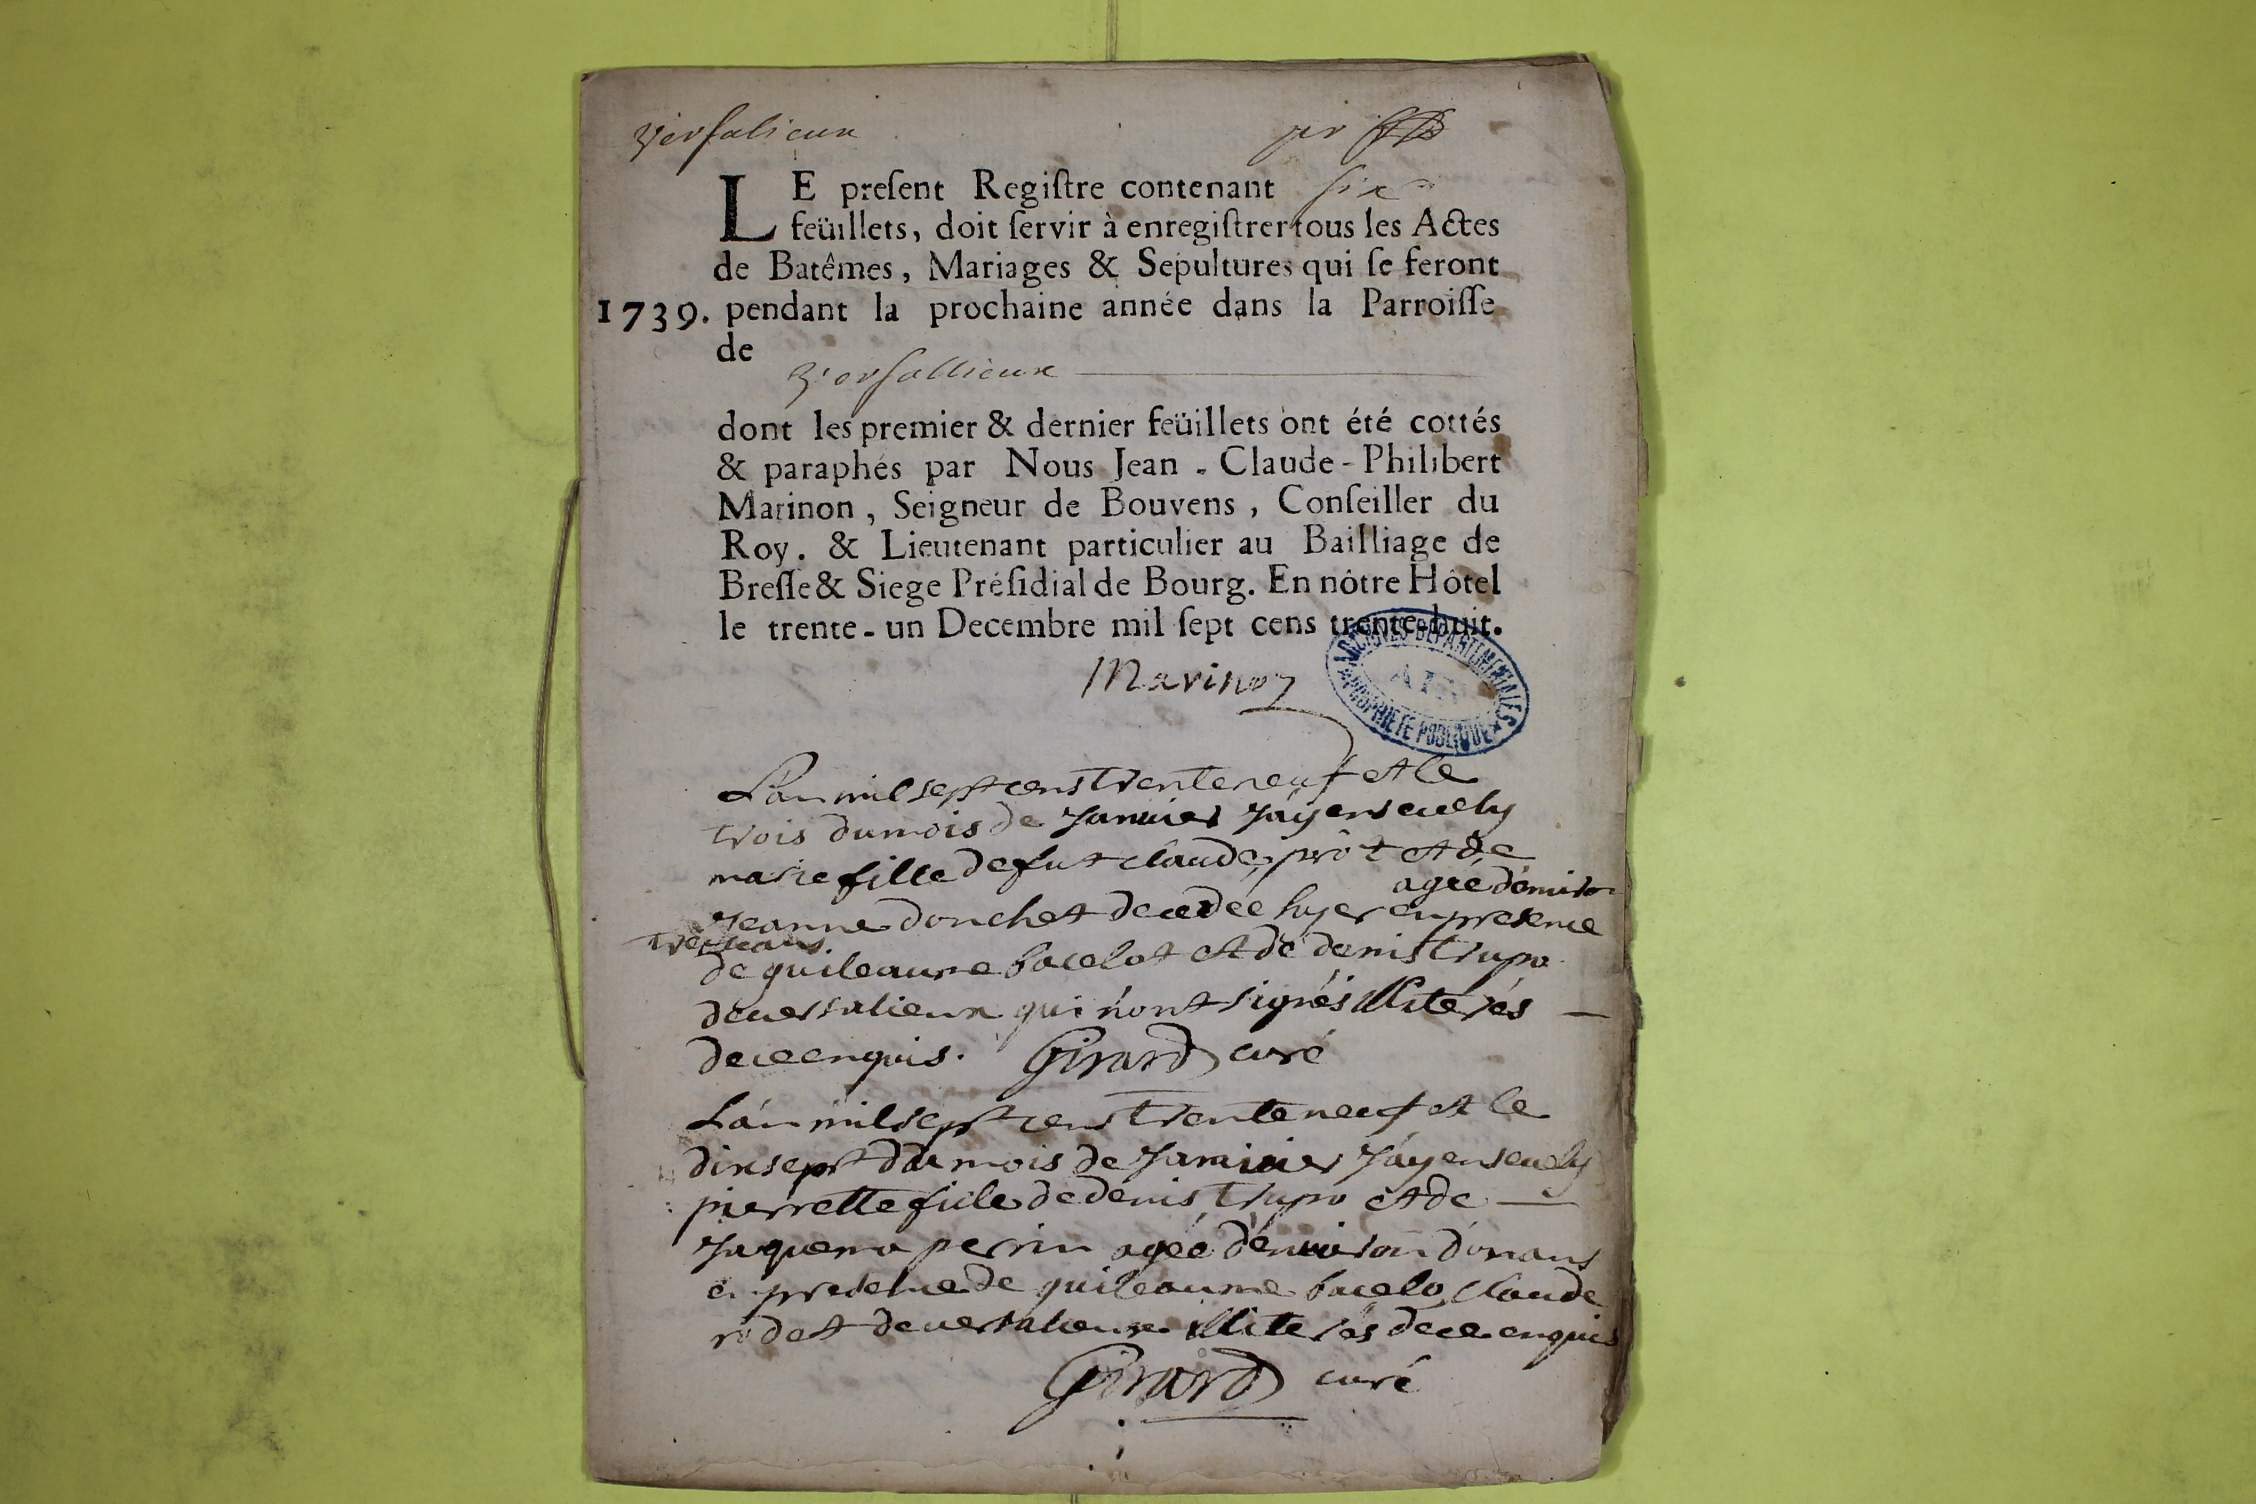 Versalieux pr
LE preſent Regiſtre contenant six
feüillets, doit ſervir à enregiſtrer tous les Actes
de Batêmes, Mariages & Sepultures qui ſe feront
1739. pendant la prochaine année dans la Parroiſſe
de
Versallieux
dont les premier & dernier feüillets ont été cottés
& paraphés par Nous Jean-Claude-Philibert
Marinon, Seigneur de Bouvens, Conſeiller du
Roy. & Lieutenant particulier au Bailliage de
Breſſe & Siege Préſidial de Bourg. En nôtre Hôtel
le trente-un Decembre mil ſept cens trente-huit.
Marinon
ARCHIVES DEPARTEMENTALES
AIN
PROPRIETE PUBLIQUE
L'an mil sept cens trente neuf et le
trois du mois de Janvier J'ay ensevely
marie fille de fut claude et de
agée d'environ
Jeanne donchet decedée hyer en presence
treize ans
de guileaume bacelot et de denis trupo
de versalieux qui n'ont signés illiterés
de ce enquis. Girard curé
L'an mil sept cens trente neuf et le
dix sept du mois de Janvier J'ay ensevely
pierrette fille de denis trupo et de
Jaquema perrin agée d'environ d'un ans
en presence de guileaume bacelo, claude
rodet de versalieux illiterés de ce enquis
Girard curé